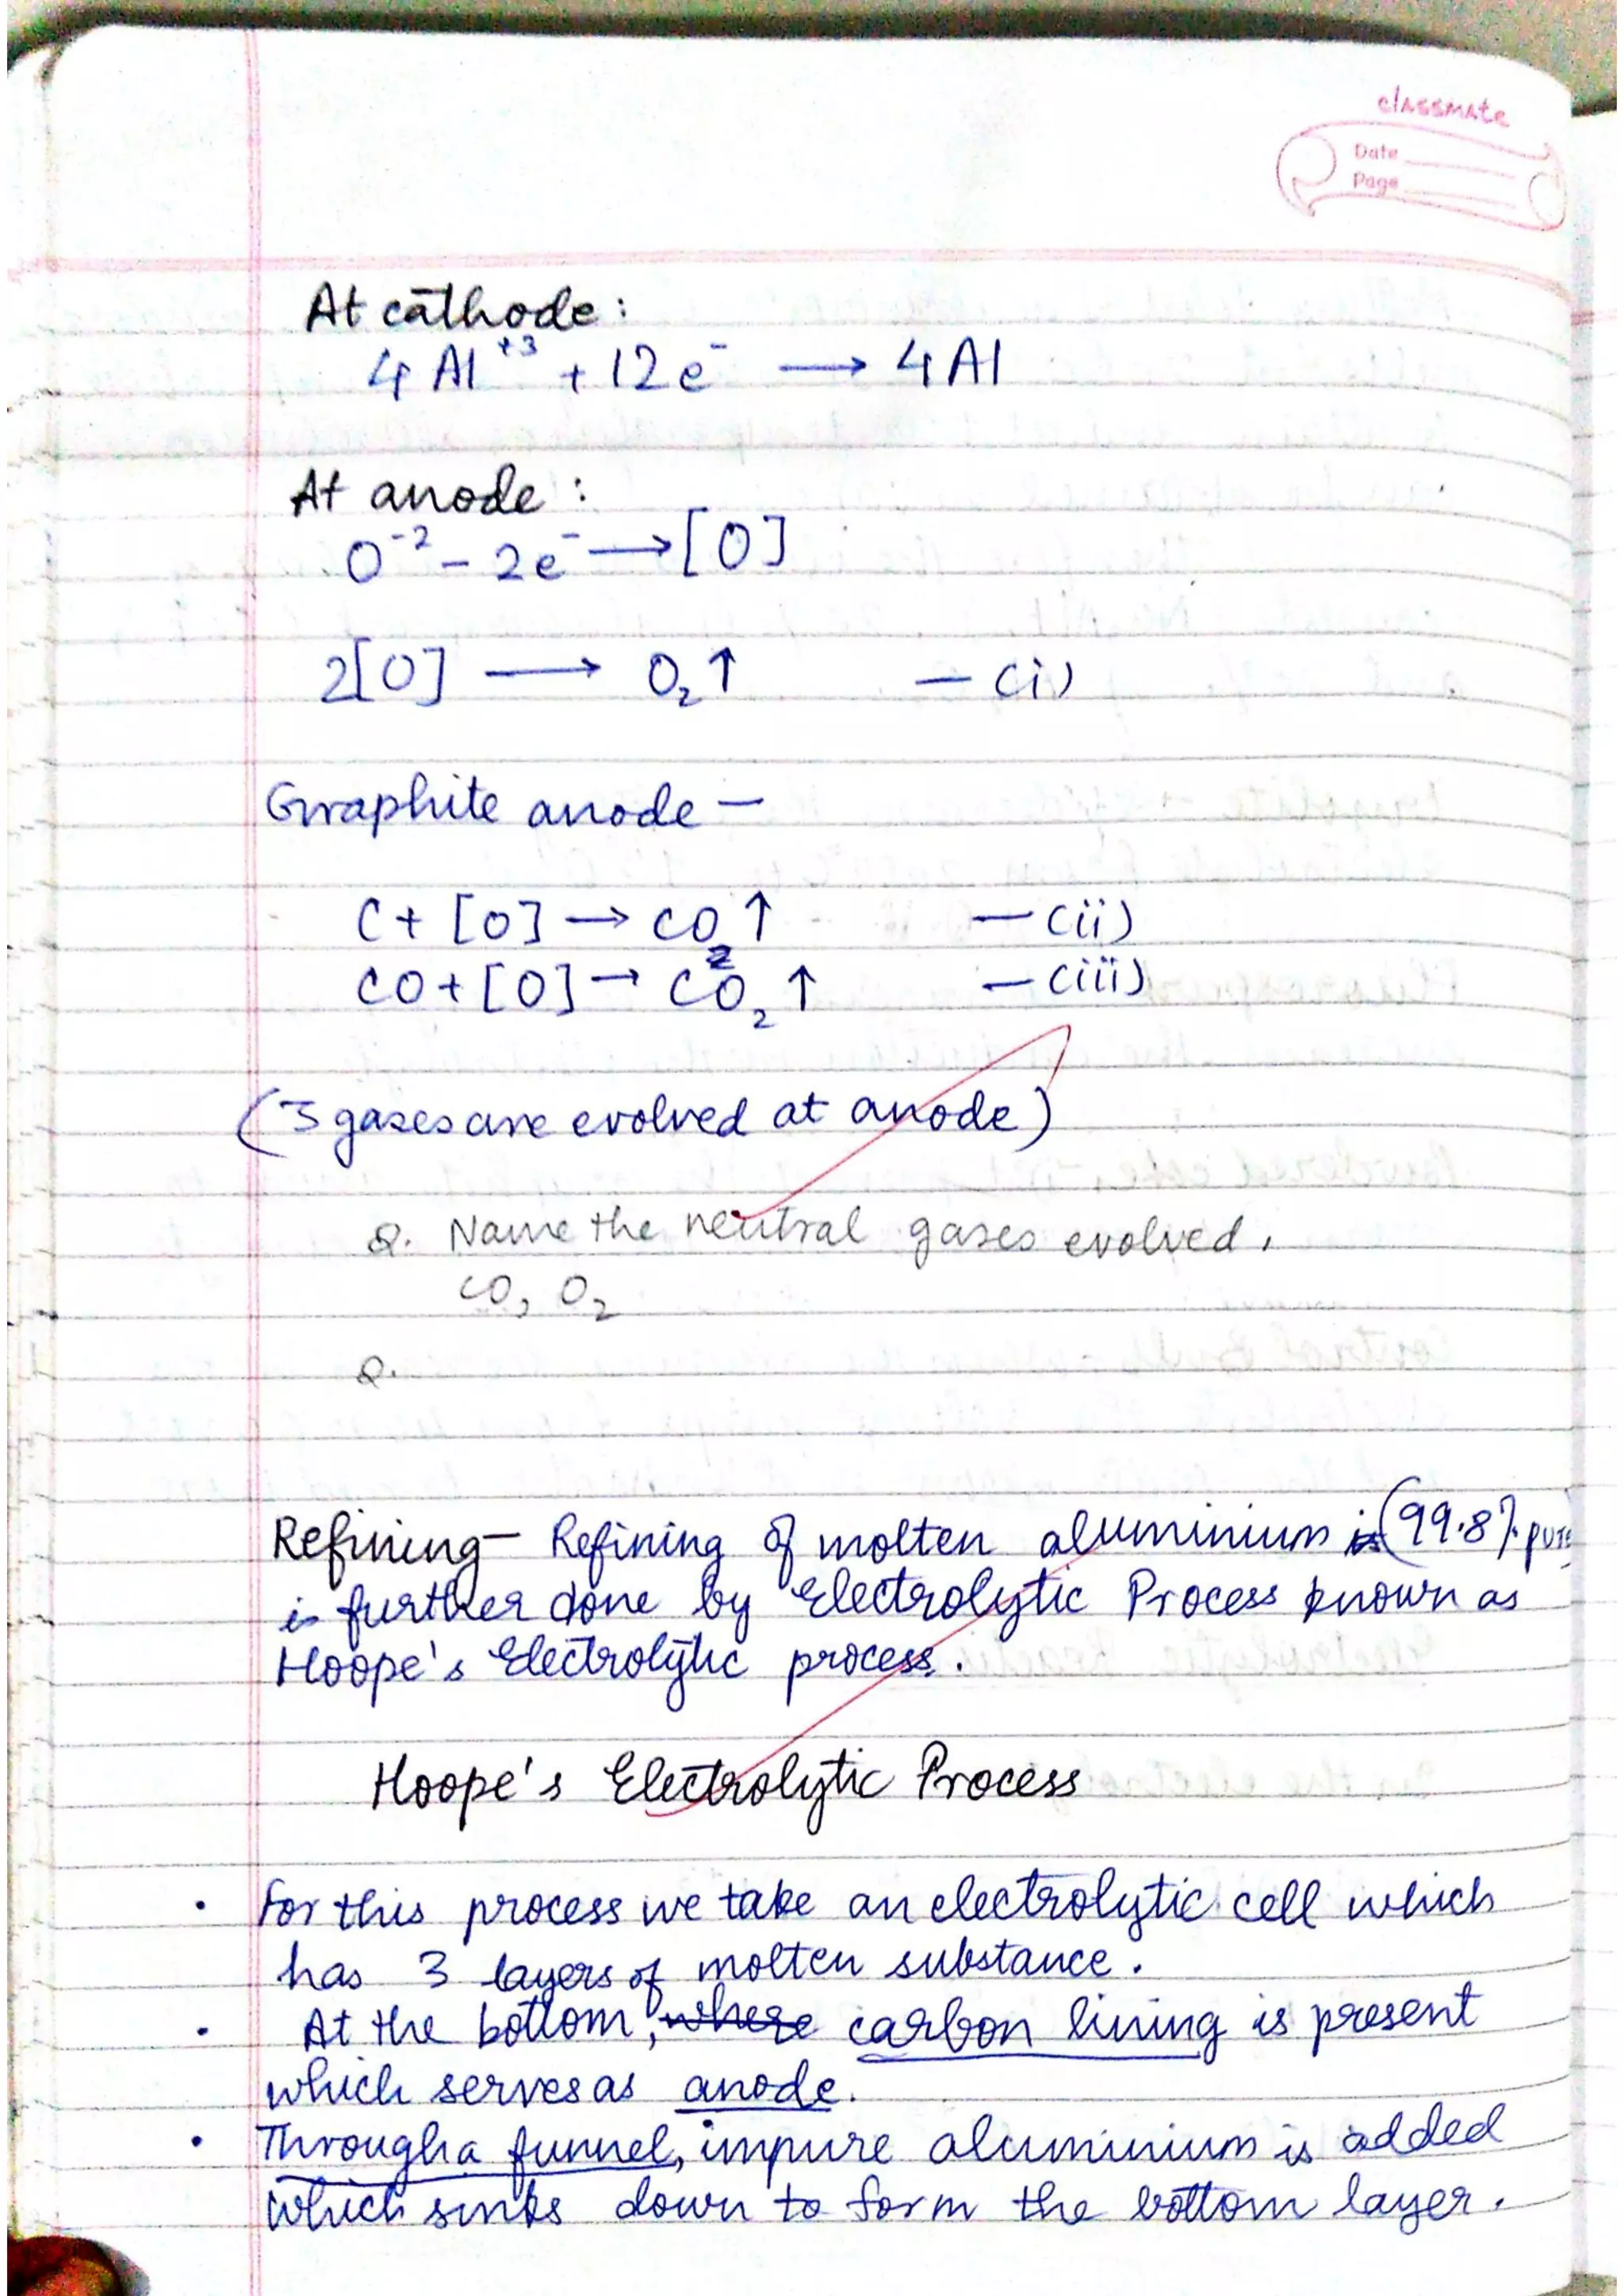 classmate
Date
Page
At cathode :
4 Al⁺³ + 12 e⁻ ⟶ 4 Al
At anode :
O⁻² - 2e⁻ ⟶ [O]
2[O] ⟶ O₂↑ — (i)
Graphite anode —
C + [O] → CO₂↑ — (ii)
CO + [O] → CO₂ ↑ — (iii)
(3 gases are evolved at anode)
Q. Name the neutral gases evolved.
CO, O₂
Q.
Refining — Refining of molten aluminium is (99.8% pure
is further done by Electrolytic Process known as
Hoope's Electrolytic process.
Hoope's Electrolytic Process
• For this process we take an electrolytic cell which
has 3 layers of molten substance.
• At the bottom, where carbon lining is present
which serves as anode.
• Through a funnel, impure aluminium is added
which sinks down to form the bottom layer.